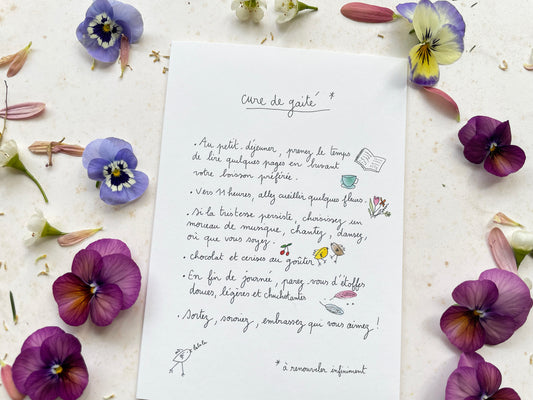 Cure de gaité *
• Au petit-déjeuner, prenez le temps
de lire quelques pages en buvant
votre boisson préférée.
• Vers 11 heures, allez cueillir quelques fleurs.
• Si la tristesse persiste, choisissez un
morceau de musique, chantez, dansez,
où que vous soyez.
• Chocolat et cerises au goûter
• En fin de journée, parez-vous d'étoffes
douces, légères et chuchotantes
• Sortez, souriez, embrassez qui vous aimez !
lalala
* à renouveler infiniment